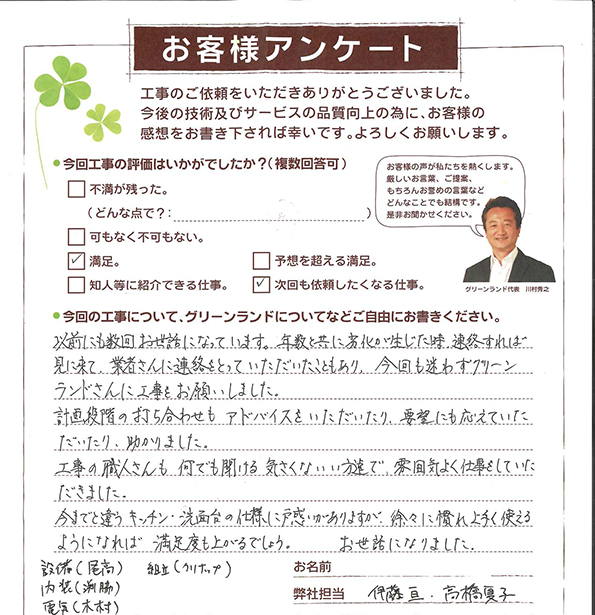 お客様アンケート
工事のご依頼をいただきありがとうございました。
今後の技術及びサービスの品質向上の為に、お客様の
感想をお書き下されば幸いです。よろしくお願いします。
今回工事の評価はいかがでしたか?(複数回答可)
不満が残った。
(どんな点で?:
可もなく不可もない。
満足。
予想を超える満足。
知人等に紹介できる仕事。
次回も依頼したくなる仕事。
お客様の声が私たちを熱くします。
厳しいお言葉、ご提案、
もちろんお誉めの言葉など
どんなことでも結構です。
是非お聞かせください。
グリーンランド代表 川村秀之
今回の工事について、グリーンランドについてなどご自由にお書きください。
以前にも数回お世話になっています。年数と共に劣化が生じた時、連絡すれば
見に来て、業者さんに連絡をとっていただいたこともあり、今回も迷わずグリーン
ランドさんに工事をお願いしました。
計画段階の打ち合わせも アドバイスをいただいたり、要望にも応えていた
だいたり、助かりました。
工事の職人さんも 何でも聞ける 気さくないい方達で、雰囲気よく仕事をしていた
だきました。
今までと違うキッチン・洗面台の仕様に戸惑いがありますが、徐々に慣れ上手く使える
ようになれば 満足度も上がるでしょう。 お世話になりました。
設備(尾高) 組立(クリナップ)
内装(渕脇)
電気(木村)
お名前
弊社担当 伊藤 亘・高橋夏子